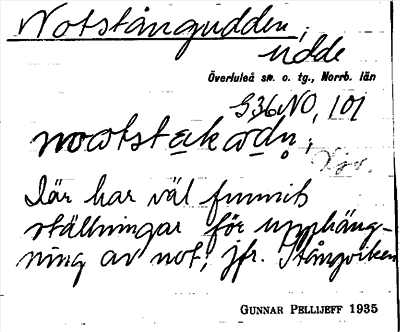 Notstångudden,
udde
Överluleå sn. o. tg., Norrb. län
G36NO, 101
Där har väl funnits
ställningar för upphäng-
ning av not; jfr. Stångviken
GUNNAR PELLIJEFF 1935